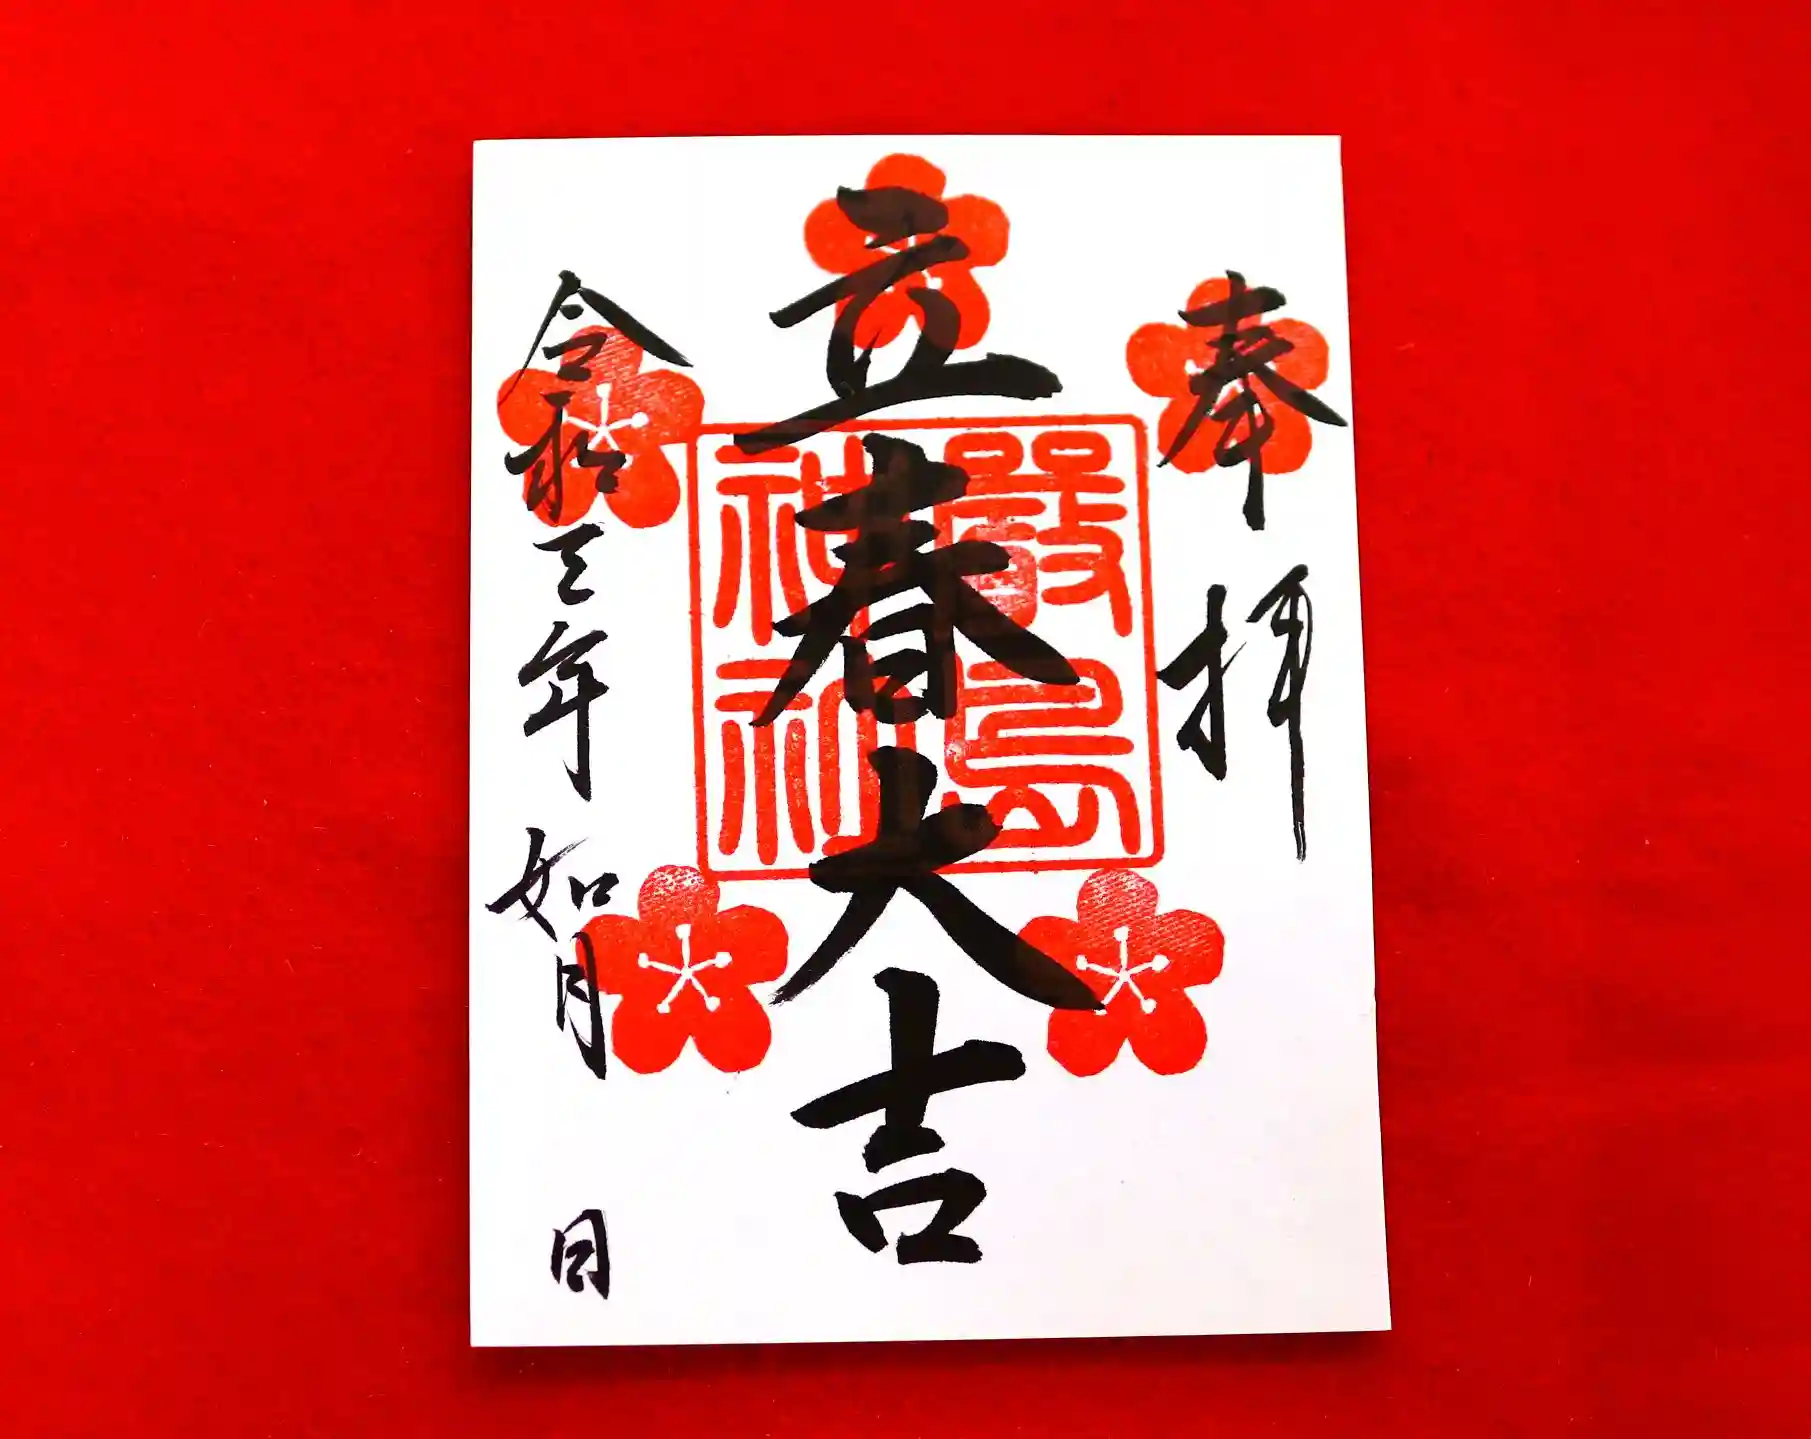 奉拝
立春大吉
厳島
神社
令和三年 如月 日